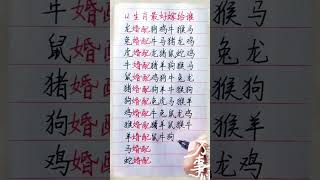 12生肖最好嫁给谁
龙婚配狗鸡牛猴马
兔婚配牛马猪龙鸡
虎婚配龙猪鼠蛇鸡
牛婚配羊猪狗猴马
鼠婚配鸡狗牛兔龙
猪婚配狗牛狗猴羊
狗婚配兔虎马猴羊
鸡婚配牛兔鼠龙鸡
猴婚配猪羊鼠猴牛
羊婚配鼠牛狗
马婚配
蛇婚配